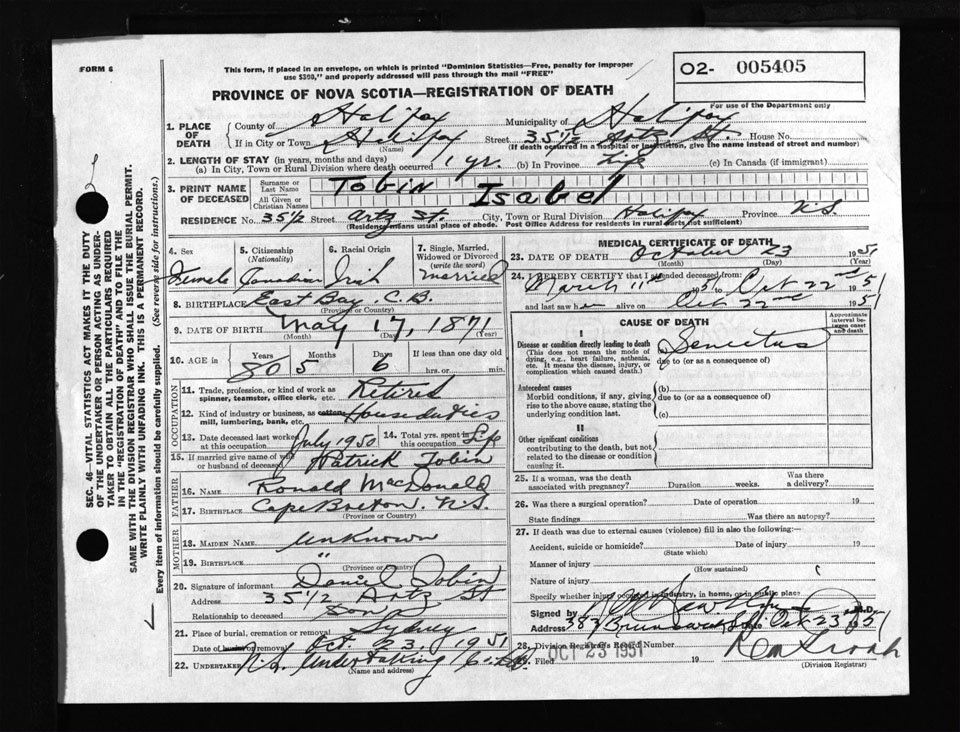 FORM 6
This form, if placed in an envelope, on which is printed "Dominion Statistics—Free, penalty for improper
use $300," and properly addressed will pass through the mail "FREE"
O2- 005405
For use of the Department only
PROVINCE OF NOVA SCOTIA—REGISTRATION OF DEATH
SEC. 46—VITAL STATISTICS ACT MAKES IT THE DUTY
OF THE UNDERTAKER OR PERSON ACTING AS UNDER-
TAKER TO OBTAIN ALL THE PARTICULARS REQUIRED
IN THE "REGISTRATION OF DEATH" AND TO FILE THE
SAME WITH THE DIVISION REGISTRAR WHO SHALL ISSUE THE BURIAL PERMIT.
WRITE PLAINLY WITH UNFADING INK. THIS IS A PERMANENT RECORD.
Every item of information should be carefully supplied. (See reverse side for instructions.)
1. PLACE OF DEATH County of Halifax Municipality of Halifax
If in City or Town Halifax (Name) Street 35 1/2 Artz St. House No.
(If death occurred in a hospital or institution, give the name instead of street and number)
2. LENGTH OF STAY (in years, months and days)
(a) In City, Town or Rural Division where death occurred 1 yr. (b) In Province Life (c) In Canada (if immigrant)
3. PRINT NAME OF DECEASED Surname or Last Name Tobin
All Given or Christian Names Isabel
RESIDENCE No. 35 1/2 Street Artz St. City, Town or Rural Division Halifax Province N.S.
(Residence means usual place of abode. Post Office Address for residents in rural parts not sufficient)
4. Sex Female
5. Citizenship (Nationality) Canadian
6. Racial Origin Irish
7. Single, Married, Widowed or Divorced (write the word) Married
8. BIRTHPLACE East Bay, C.B.
(Province or Country)
9. DATE OF BIRTH May 17, 1871
(Month) (Day) (Year)
10. AGE in Years 80 Months 5 Days 6 If less than one day old hrs. or min.
OCCUPATION
11. Trade, profession, or kind of work as spinner, teamster, office clerk, etc. Retired
12. Kind of industry or business, as cotton mill, lumbering, bank, etc. House duties
13. Date deceased last worked at this occupation July 1950 14. Total yrs. spent in this occupation Life
15. If married give name of wife or husband of deceased Patrick Tobin
FATHER
16. NAME Ronald MacDonald
17. BIRTHPLACE Cape Breton N.S.
(Province or Country)
MOTHER
18. MAIDEN NAME Unknown
19. BIRTHPLACE "
(Province or Country)
20. Signature of informant Daniel Tobin
Address 35 1/2 Artz St
Relationship to deceased Son
21. Place of burial, cremation or removal Sydney
Date of burial or removal Oct. 23, 1951
22. UNDERTAKER N.S. Undertaking Co.
(Name and address)
MEDICAL CERTIFICATE OF DEATH
23. DATE OF DEATH October 23 1951
(Month) (Day) (Year)
24. I HEREBY CERTIFY that I attended deceased from:
March 11th 1951 to Oct 22nd 1951
and last saw her alive on Oct 22nd 1951
CAUSE OF DEATH
Approximate interval between onset and death
I
Disease or condition directly leading to death
(This does not mean the mode of dying, e.g., heart failure, asthenia, etc. It means the disease, injury, or complication which caused death.)
(a) Senectus
due to (or as a consequence of)
Antecedent causes
Morbid conditions, if any, giving rise to the above cause, stating the underlying condition last.
(b)
due to (or as a consequence of)
(c)
II
Other significant conditions
contributing to the death, but not related to the disease or condition causing it.
25. If a woman, was the death associated with pregnancy? Duration weeks. Was there a delivery?
26. Was there a surgical operation? Date of operation 19
State findings Was there an autopsy?
27. If death was due to external causes (violence) fill in also the following:—
Accident, suicide or homicide? Date of injury 19
(State which)
Manner of injury
(How sustained)
Nature of injury
Specify whether injury occurred in industry, in home, or in public place
Signed by M.D.
Address 383 Brunswick St. Date Oct 23 1951
28. Division Registrar's Record Number
29. Filed OCT 23 1951 19
(Division Registrar)